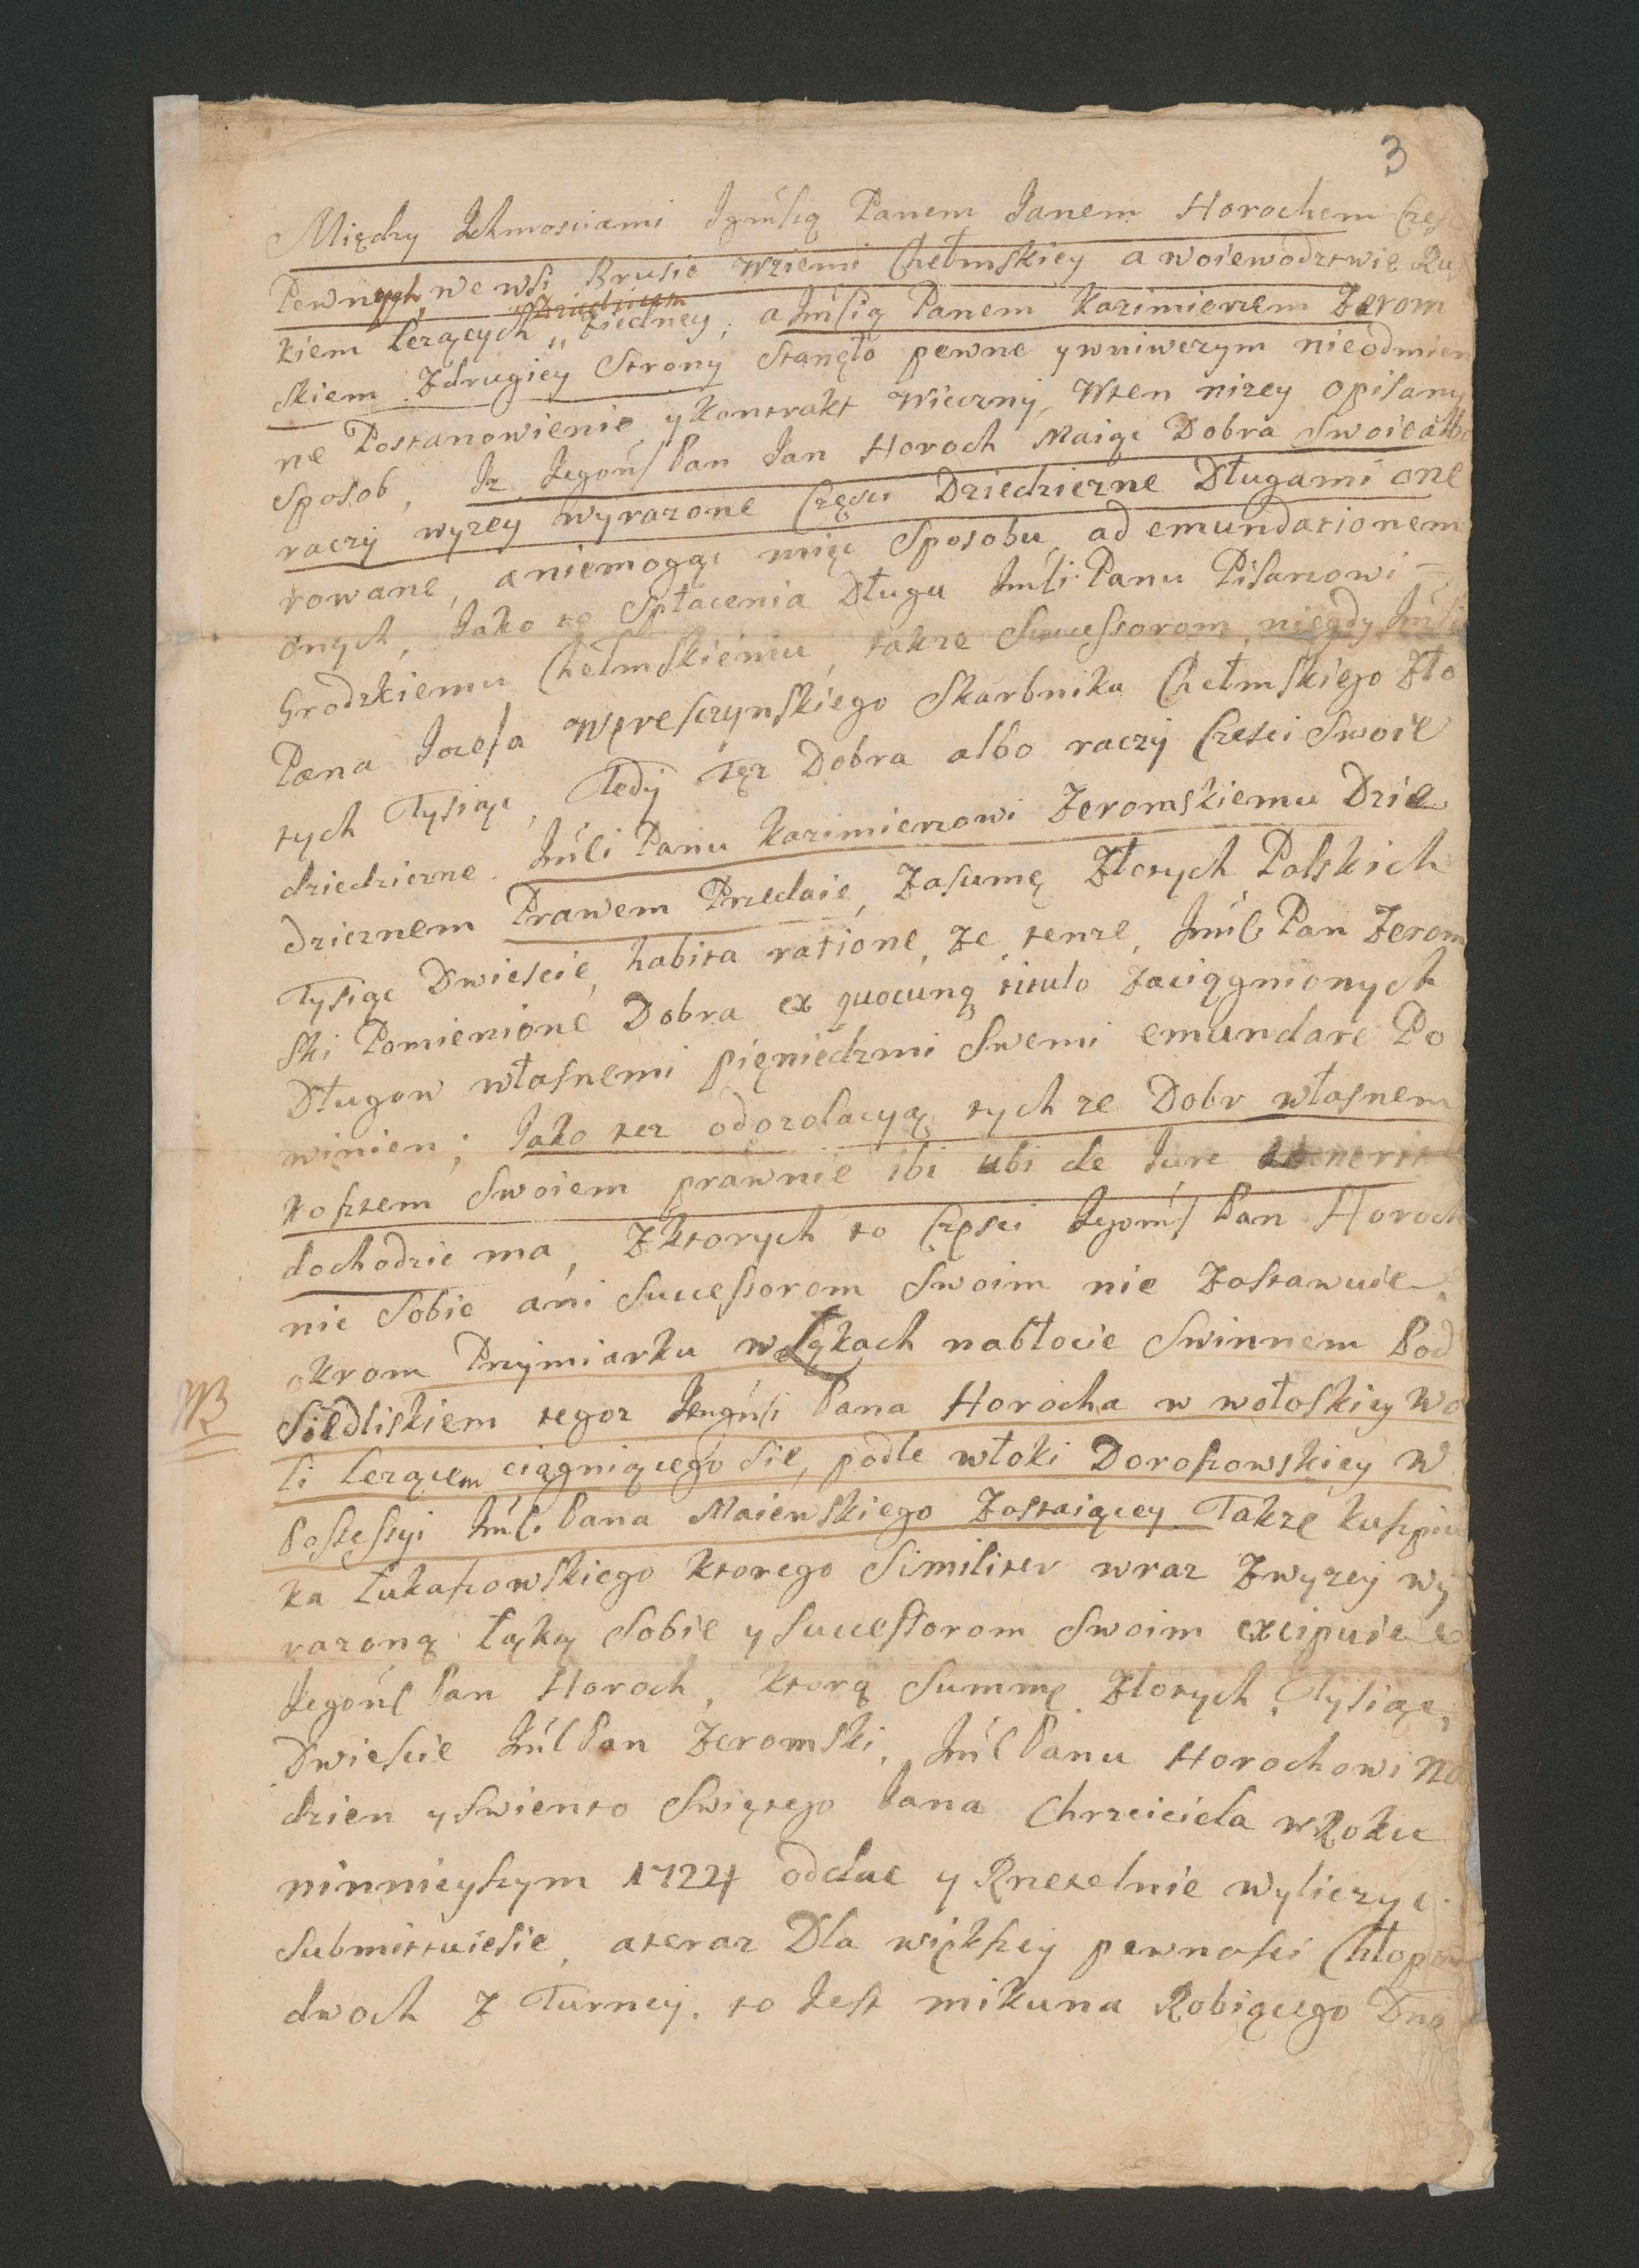 3
Między Ichmosciami Jgmścią Panem Janem Horochem Częsci
Pewnych, we wsi Brusie wziemi Chełmskiey a woiewodztwie Rus
kiem Lezących „ Dziedzicem Ziedney, a Jmścią Panem Kazimierzem Zerom
skiem Zdrugiey Strony Stanęło pewne ywniwczym nieodmien
ne Postanowienie ykontrakt Wieczny, Wten nizey opisany
Sposob, Iz Jegomś Pan Jan Horoch Maiąc Dobra Swoie albo
raczy wyzey wyrazone Częsci Dziedziczne Długami one
rowane, aniemogąc mięc Sposobu ad emundationem
onych, Jako to Spłacenia Długu Jmści Panu Pisarzowi
Grodzkiemu Chełmskiemu, takze Successorom niegdy Jmści
Pana Jozefa Wereszczynskiego Skarbnika Chełmskiego Zło
tych Tysiąc, Tedy Tęz Dobra albo raczy Częsci Swoie
dziedziczne Jmści Panu Kazimierzowi Zeromskiemu Dzie
dzicznem Prawem Przedaie, Zasumę Złotych Polskich
Tysiąc Dwiescie, habita ratione, Ze tenze, Jmść Pan Zerom
ski Pomienione Dobra ex quocunq titulo Zaciągnionych
Długow własnemi pięniedzmi Swemi emundare Po
winien; Jako tez odozolacyą tych ze Dobr własnem
kosztem Swoiem prawnie ibi ubi de Jure
dochodzic ma, Zktorych to Częsci Jegomś Pan Horoch
nic Sobie ani Successorom Swoim nie Zostawuie,
okrom Przymiarku w Łąkach nabłocie Swinnem Pod
NB
Siedliskiem tegoz Jmści Pana Horocha w wołoskiey Wo
li Lezącem ciągniącego Sie, podle włoki Doroszowskiey W
Possessyi Jmści Pana Maiewskiego Zostaiącey Takze
ka Łukaszowskiego ktorego Similiter wraz Zwyzey wy
razoną Łąką Sobie y Successorom Swoim excipuie
Jegomść Pan Horoch, ktorą Summę Złotych, Tysiąc,
Dwiescie Jmść Pan Zeromski, Jmść Panu Horochowi Na
dzien y swiento Swiętego Jana Chrzciciela w Roku
ninnieyszym 1724 oddac y Rzetelnie wyliczyc
submittuiesie, ateraz Dla większey pewnosci Chłopow
dwoch Z Turney. to Jest mikuna Robiącego Dni